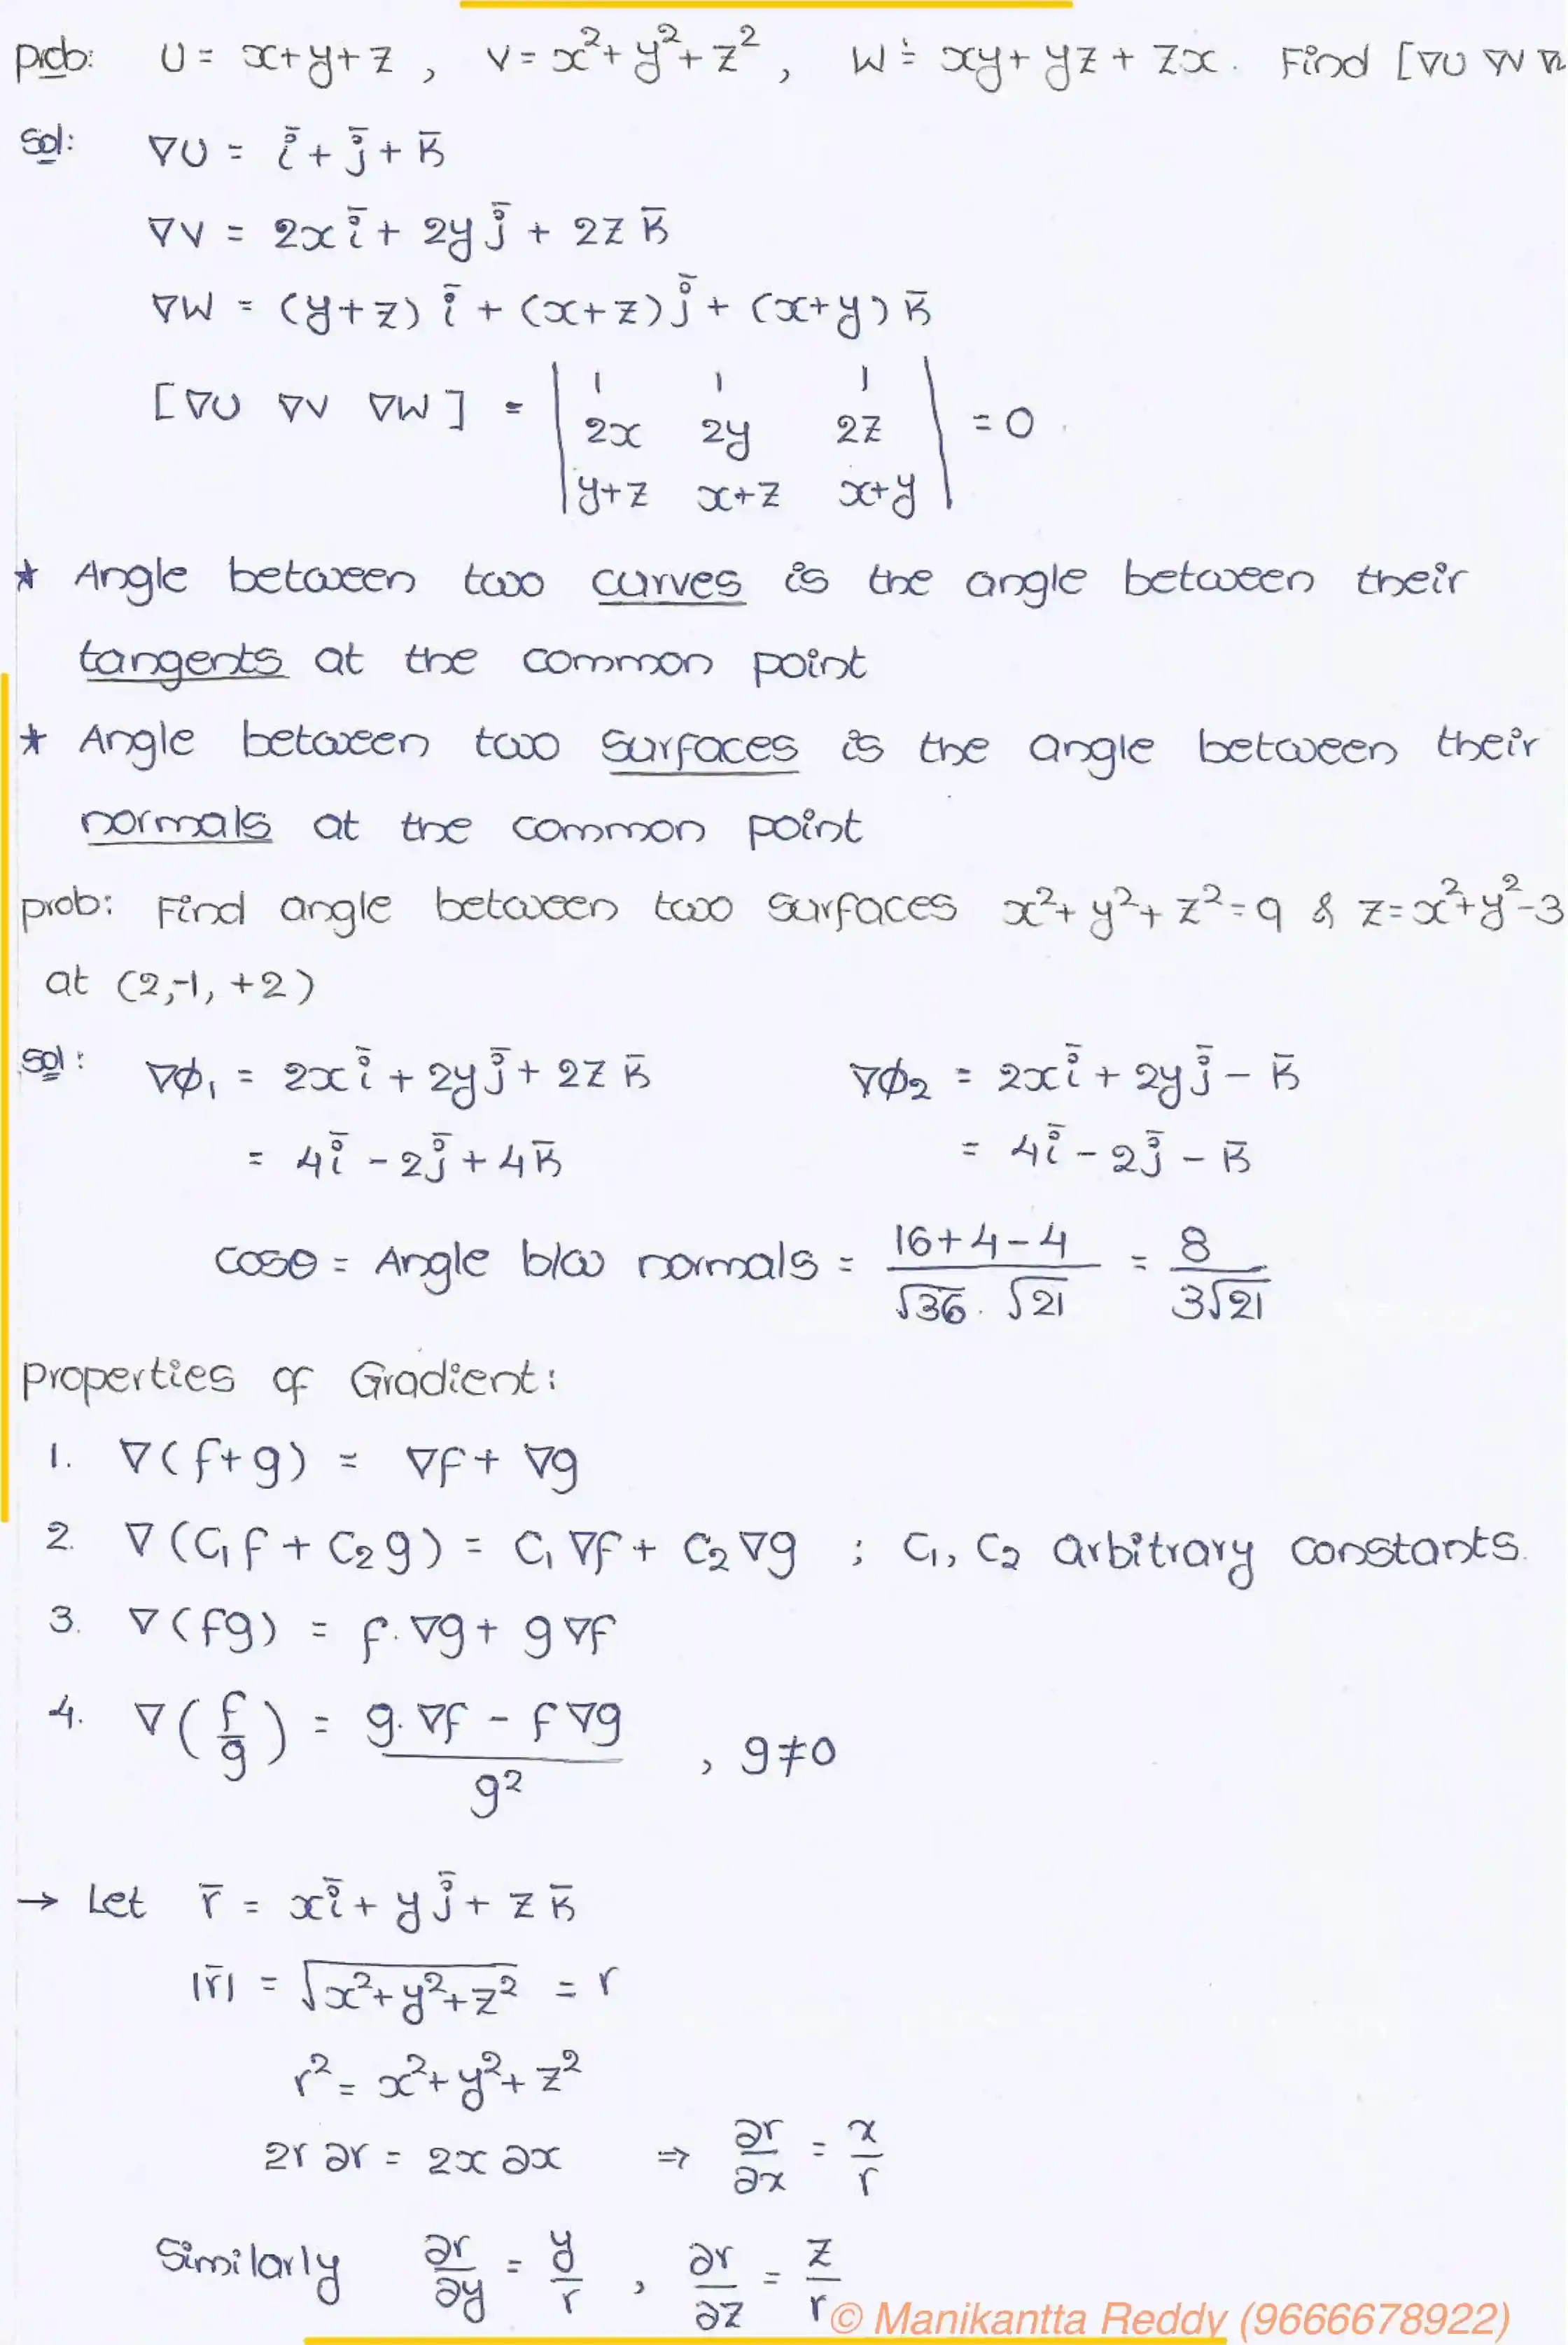 prob: U = x+y+z , V = x²+y²+z² , W = xy+yz+zx. Find [∇U ∇V ∇
sol: ∇U = i̅ + j̅ + k̅
∇V = 2x i̅ + 2y j̅ + 2z k̅
∇W = (y+z) i̅ + (x+z) j̅ + (x+y) k̅
[∇U ∇V ∇W] = | 1 1 1 | = 0
| 2x 2y 2z |
| y+z x+z x+y |
* Angle between two curves is the angle between their
tangents at the common point
* Angle between two surfaces is the angle between their
normals at the common point
prob: Find angle between two surfaces x²+y²+z²=9 & z=x²+y²-3
at (2,-1,+2)
sol: ∇Ø₁ = 2x i̅ + 2y j̅ + 2z k̅ ∇Ø₂ = 2x i̅ + 2y j̅ - k̅
= 4i̅ - 2j̅ + 4k̅ = 4i̅ - 2j̅ - k̅
cosθ = Angle b/w normals = (16+4-4)/(√36 . √21) = 8/(3√21)
Properties of Gradient:
1. ∇(f+g) = ∇f + ∇g
2. ∇(C₁f + C₂g) = C₁∇f + C₂∇g ; C₁, C₂ arbitrary constants.
3. ∇(fg) = f.∇g + g∇f
4. ∇(f/g) = (g.∇f - f∇g)/g² , g≠0
→ Let r̅ = x i̅ + y j̅ + z k̅
|r̅| = √(x²+y²+z²) = r
r² = x²+y²+z²
2r ∂r = 2x ∂x ⇒ ∂r/∂x = x/r
Similarly ∂r/∂y = y/r , ∂r/∂z = z/r
© Manikantta Reddy (9666678922)